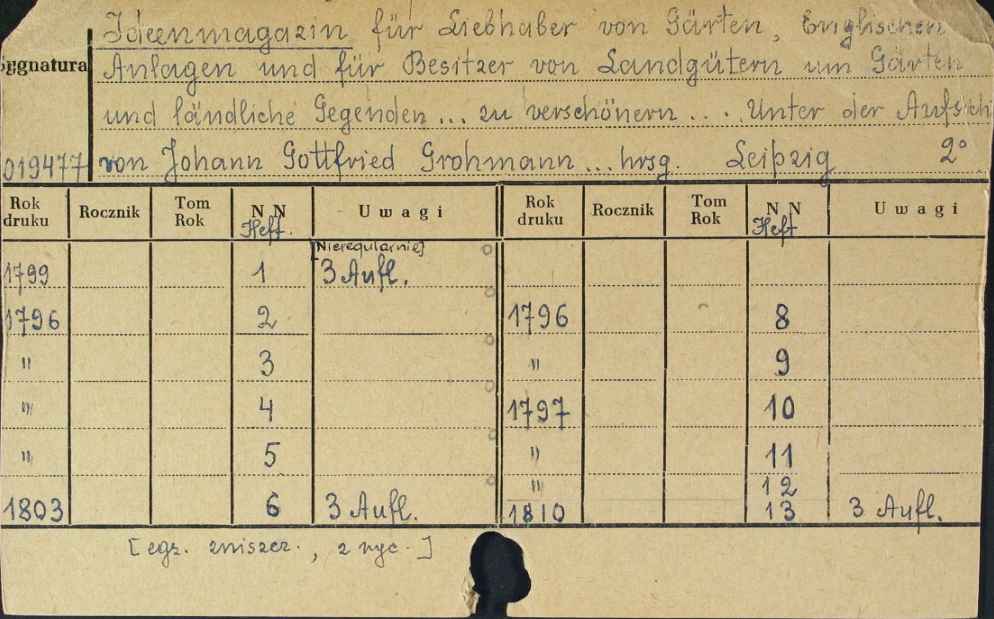 Ideenmagazin für Liebhaber von Gärten, Englischen
Sygnatura Anlagen und für Besitzer von Landgütern um Gärten
und ländliche Gegenden ... zu verschönern ... . Unter der Aufsich
019477 von Johann Gottfried Grohmann ... hrsg. Leipzig 2°
Rok druku Rocznik Tom Rok NN Heft. Uwagi Rok druku Rocznik Tom Rok NN Heft Uwagi
[Nieregularnie]
1799 1 3 Aufl.
1796 2 1796 8
" 3 " 9
" 4 1797 10
" 5 " 11
" 12
1803 6 3 Aufl. 1810 13 3 Aufl.
[egz. zniszcz., z ryc.]